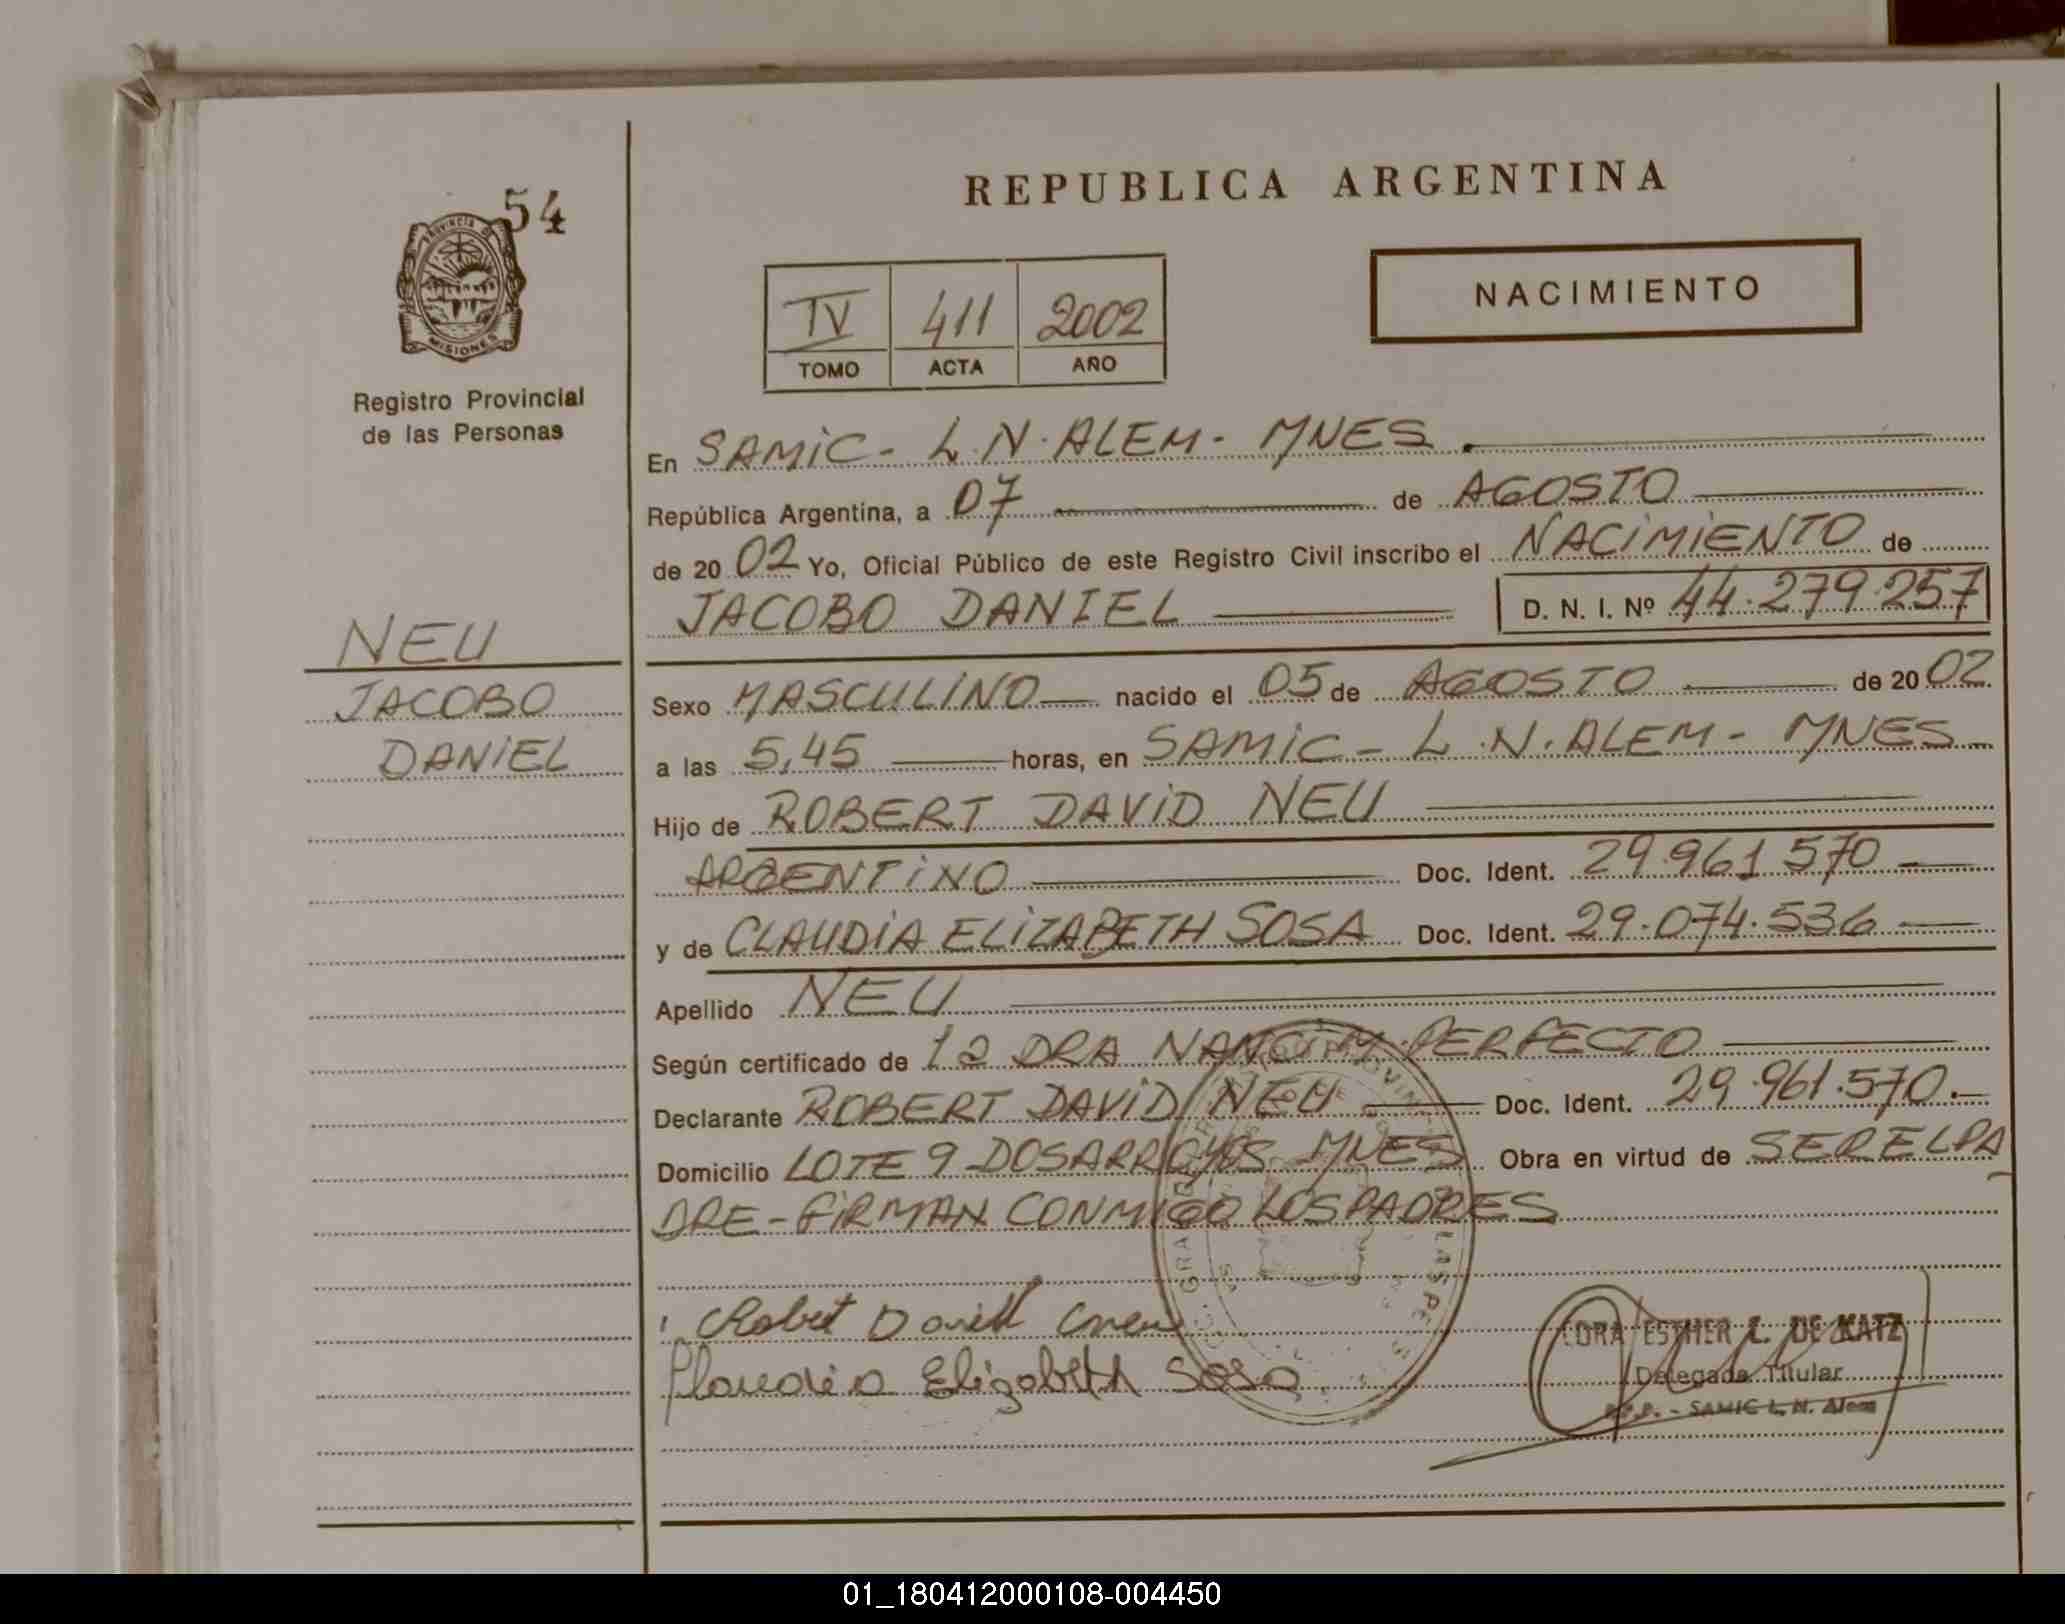 54
PROVINCIA DE
MISIONES
Registro Provincial
de las Personas
NEU
JACOBO
DANIEL
REPUBLICA ARGENTINA
IV 411 2002
TOMO ACTA AÑO
NACIMIENTO
En SAMIC - L.N. ALEM - MNES.
República Argentina, a 07 de AGOSTO
de 2002 Yo, Oficial Público de este Registro Civil inscribo el NACIMIENTO de
JACOBO DANIEL D. N. I. Nº 44.279.257
Sexo MASCULINO nacido el 05 de AGOSTO de 2002
a las 5,45 horas, en SAMIC - L.N. ALEM - MNES
Hijo de ROBERT DAVID NEU
ARGENTINO Doc. Ident. 29.961.570
y de CLAUDIA ELIZABETH SOSA Doc. Ident. 29.074.536
Apellido NEU
Según certificado de DRA NANCY M. PERFECTO
Declarante ROBERT DAVID NEU Doc. Ident. 29.961.570.-
Domicilio LOTE 9 DOS ARROYOS MNES Obra en virtud de SER EL PA
DRE - FIRMAN CONMIGO LOS PADRES
Robert David Neu
Claudia Elizabeth Sosa
DRA ESTHER L. DE KATZ
Delegada Titular
R.P.P. - SAMIC L. N. Alem
01_180412000108-004450